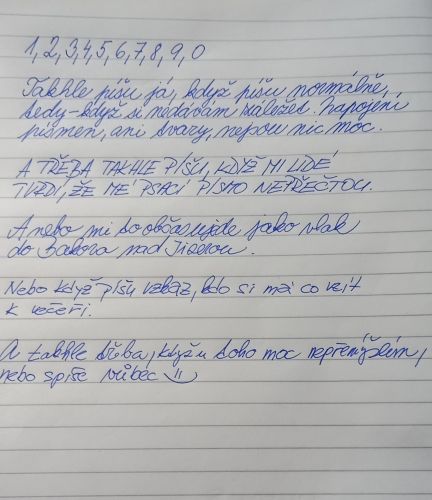 1,2,3,4,5,6,7,8,9,0
Takhle píšu já, když píšu normálně,
tedy-když si nedávám záležet. Napojení
písmen, ani tvary, nejsou nic moc.
A TŘEBA TAKHLE PÍŠU, KDYŽ MI LIDÉ
TVRDÍ, ŽE MÉ PSACÍ PÍSMO NEPŘEČTOU.
A nebo mi to občas ujede jako vlak
do Bakova nad Jizerou.
Nebo když píšu vzkaz, kdo si má co vzít
k večeři.
A takhle třeba, když u toho moc nepřemýšlím,
nebo spíše vůbec